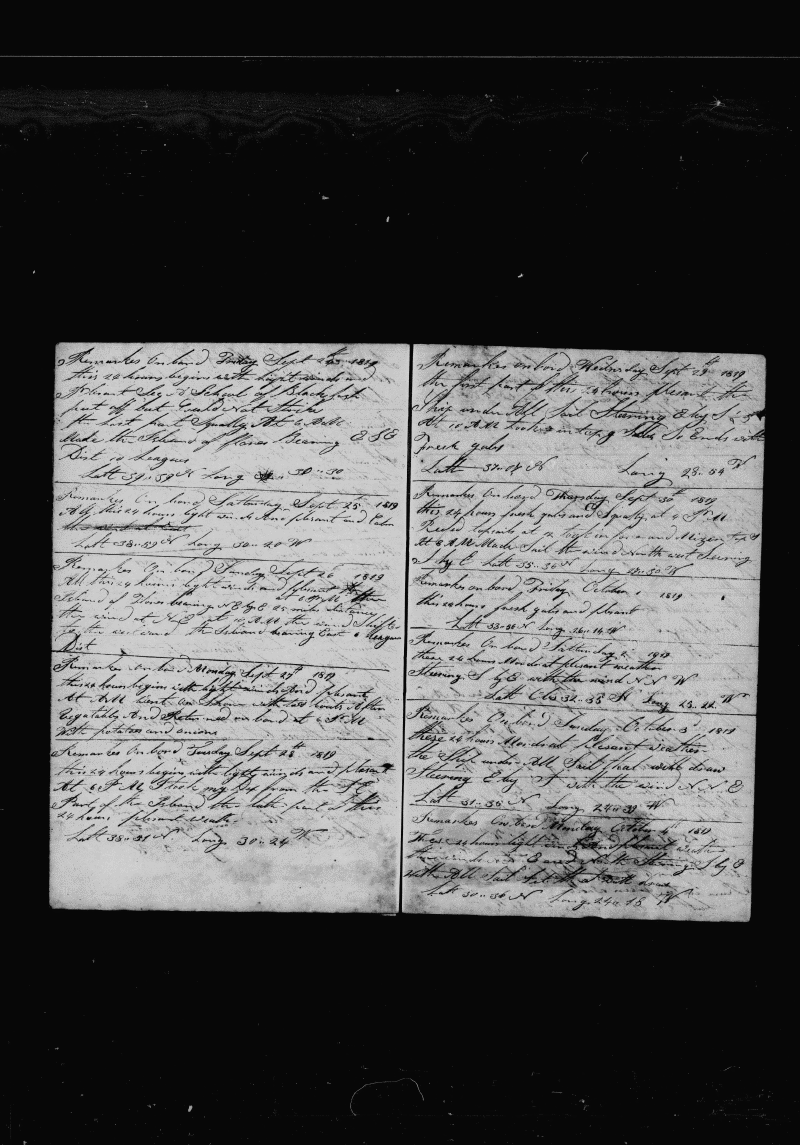 Remarkes On bord Friday Sept 24th 1819
this 24 hours begins with light winds and
Plesant Seg A School of Blackfish
put off but Could Not Strike
the last part Squaly At 6 AM
Made the Island of flores Bearing E S E
Dist 10 Leagues
Latt 39..39 N Long 30..30
Remarkes On bord Satturday Sept 25th 1819
All this 24 hours light winds And plesant and Calm
Latt 38..59 N Long 30..20 W
Remarkes On bord Sunday Sept 26 1819
All this 24 hours light winds and plesant at 6 P M the
Island of Flores bearing N E by E 25 mile distance
the wind at N E at 10 AM the wind Shifts
to the westward the Island bearing East 6 leagues
Dist
Remarkes On bord Monday Sept 27th 1819
this 24 hours begins with light winds And plesant
At AM went On Shore with two boats After
Vegatables And Returned on bord at 6 P M
With potatoes and onions
Remarkes On bord Tuesday Sept 28th 1819
this 24 hours begins with light winds and plesant
At 6 P M Took my from the S E
Part of the Island the latter part of this
24 hours plesant weath
Latt 38..31 N Long 30..24 W
Remarkes on bord Wednsday Sept 29th 1819
the first part of this 24 hours plesant the
Ship under All Sail Steering E by S
At 10 AM took in top g Sails So Ends with
fresh gales
Latt 37..08 N Long 28..54 W
Remarkes On bord Thursday Sept 30th 1819
this 24 hours fresh gales and Squaly at 4 P M
Reefed topsails at 12 took in fore and Mizen top S
At 6 AM Made Sail the wind North west Steering
S by E Latt 35..36 N Long 27..50 W
Remarkes on bord Friday October 1 1819
this 24 hours fresh gales and plesant
Latt 33..56 N Long 26..14 W
Remarkes On bord Satturday 2 1819
these 24 hours Moderat plesant weather
Steering S by E with the wind N N W
Latt Obs 32..35 N Long 25..22 W
Remarkes On bord Sunday October 3d 1819
these 24 hours Moderat plesant weather
the Ship under All Sail that would draw
Steering E by S with the wind N N E
Latt 31..35 N Long 24..39 W
Remarkes On bord Monday October 4th 1819
These 24 hours light winds And plesant weath
the winds E and North Steering S by E
with All Sail Set that would draw
Latt 30..36 N Long 24..15 W